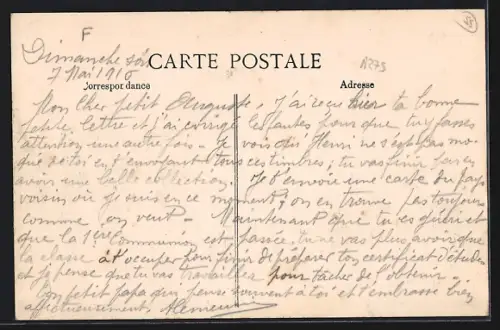 F
55
Dimanche soir
7 Mai 1916
CARTE POSTALE
A275
Correspondance
Adresse
Mon cher petit Auguste, J'ai reçu hier ta bonne
petite lettre et j'ai corrigé les fautes pour que tu fasses
attention une autre fois. Je vois qu'Henri ne s'est pas mo
qué de toi en t'envoyant tous ces timbres; tu vas finir par en
avoir une belle collection. Je t'envoie une carte du pays
voisin où je suis en ce moment; on en trouve pas toujours
comme on veut. Maintenant que tu es guéri et
que la 1ère Communion est passée, tu ne vas plus avoir que
la classe à t'occuper pour finir de préparer ton certificat d'études
et je pense que tu vas travailler pour tâcher de l'obtenir.
Ton petit papa qui pense souvent à toi et t'embrasse bien
affectueusement.